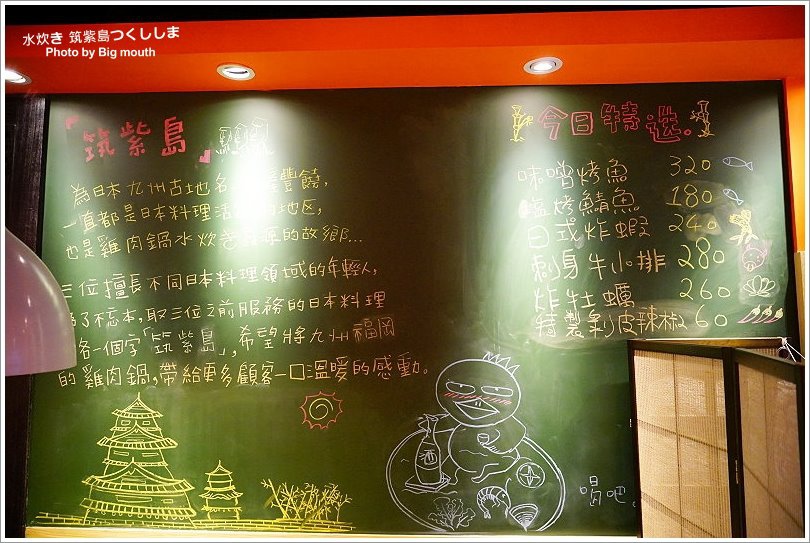 水炊き 筑紫島つくししま
Photo by Big mouth
「筑紫島」
為日本九州古地名 豐饒,
一直都是日本料理活 的地区,
也是雞肉鍋水炊き 源的故鄉...
三位擅長不同日本料理領域的年輕人,
了不忘本,取三位之前服務的日本料理
各一個字「筑紫島」,希望將九州福岡
的雞肉鍋,帶給更多顧客一口溫暖的感動。
今日特选.
味噌烤魚 320
塩烤鯖魚 180
日式炸蝦 240
刺身牛小排 280
炸牡蠣 260
精製剝皮辣椒 60
酒
喝吧.